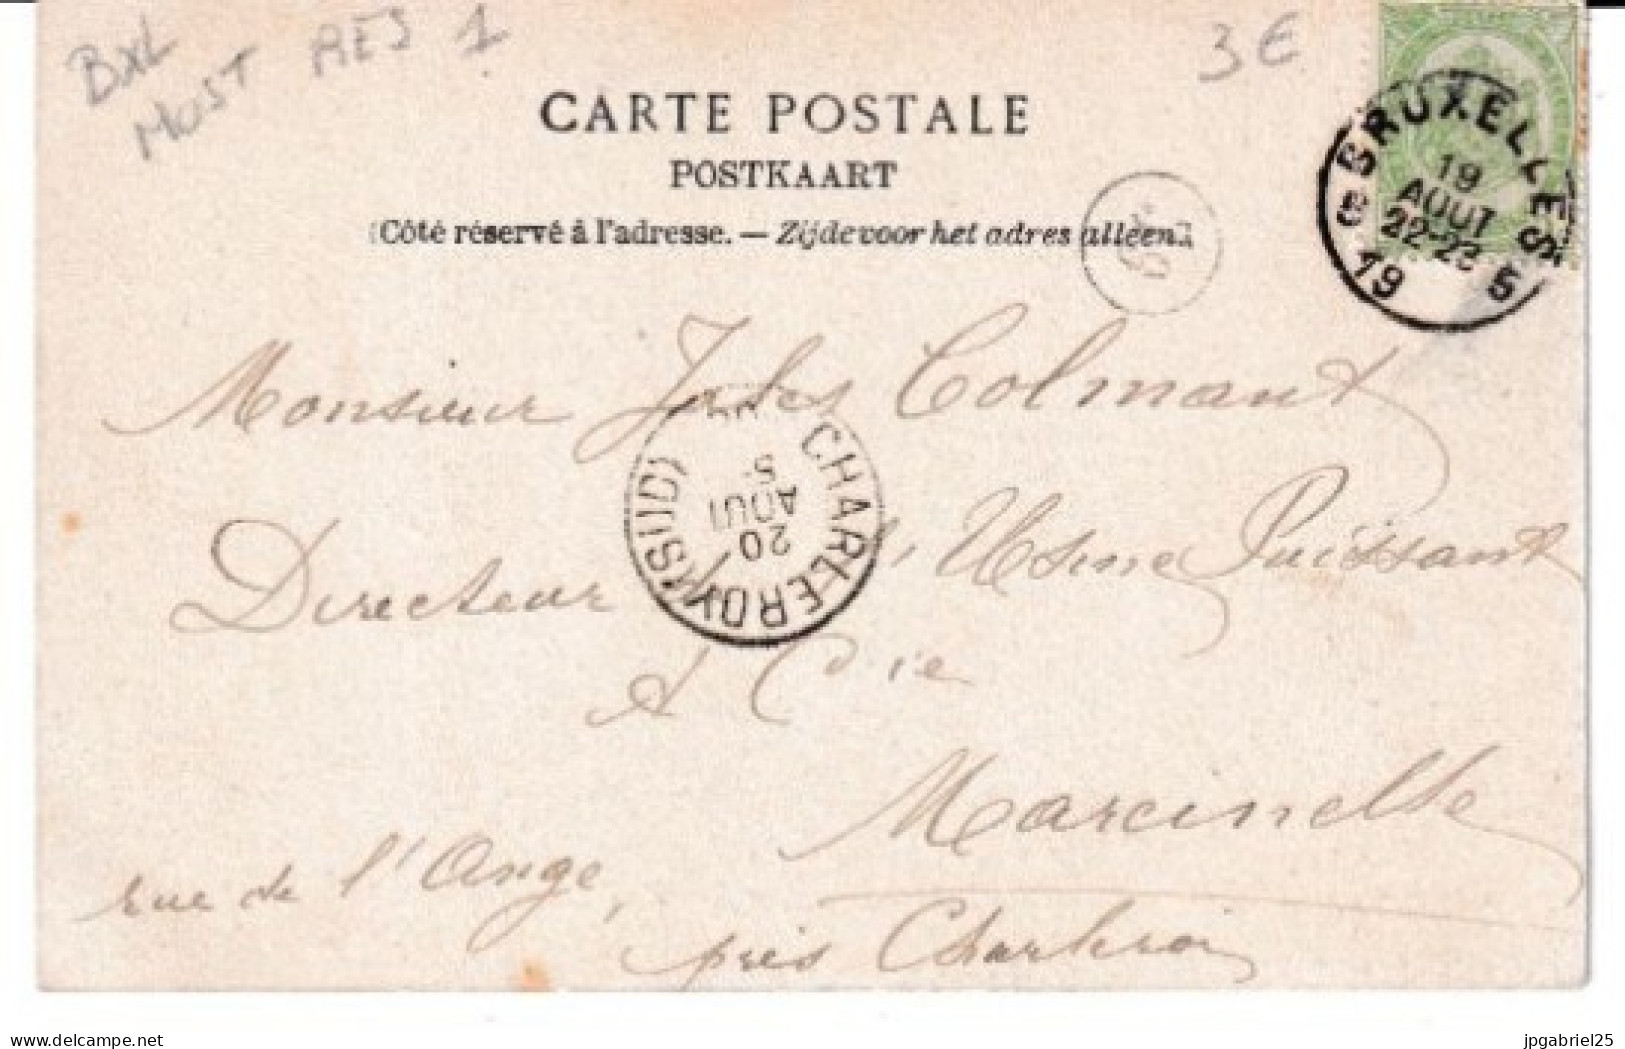 BXL
MOST RES 1
3 €
CARTE POSTALE
POSTKAART
(Côté réservé à l'adresse. — Zijde voor het adres alléén.)
BRUXELLES 5
19
AOUT
22-23
19 5
Monsieur Jules Colmant
CHARLEROY (SUD)
20
AOUT
5
Directeur l'Usine Puissant
& Cie
Marcinelle
rue de l'Ange,
près Charleroi
delcampe.net
jpgabriel25